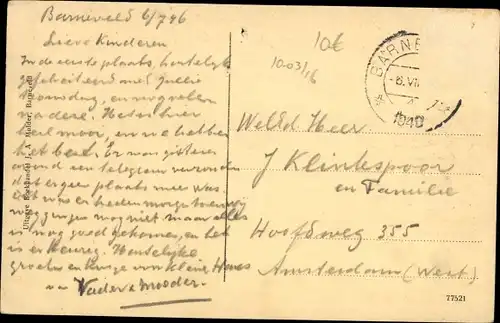 Barneveld 6/7 46
Lieve Kinderen
In de eerste plaats hartelijk
gefeliciteerd met jullie
trouwdag, en nog velen
na deze. Het is hier
heel mooi, en we hebben
het best. Er was gisteren
avond een telegram
dat er geen plaats meer was.
was er heden morgen
nog niet maar alles
is nog goed gekomen, en het
is er keurig. Hartelijke
groeten en kusjes voor kleine Hans
van Vader & Moeder.
Uitgave Boekhandel J. A. Mulder, Barneveld
10€
1003/16
BARNE
-8.VII
1940
WelEd Heer
J Klinkespoor
en Familie
Hoofdweg 355
Amsterdam (West)
77521